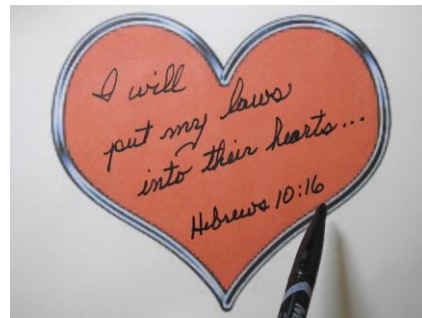 I will
put my laws
into their hearts...
Hebrews 10:16